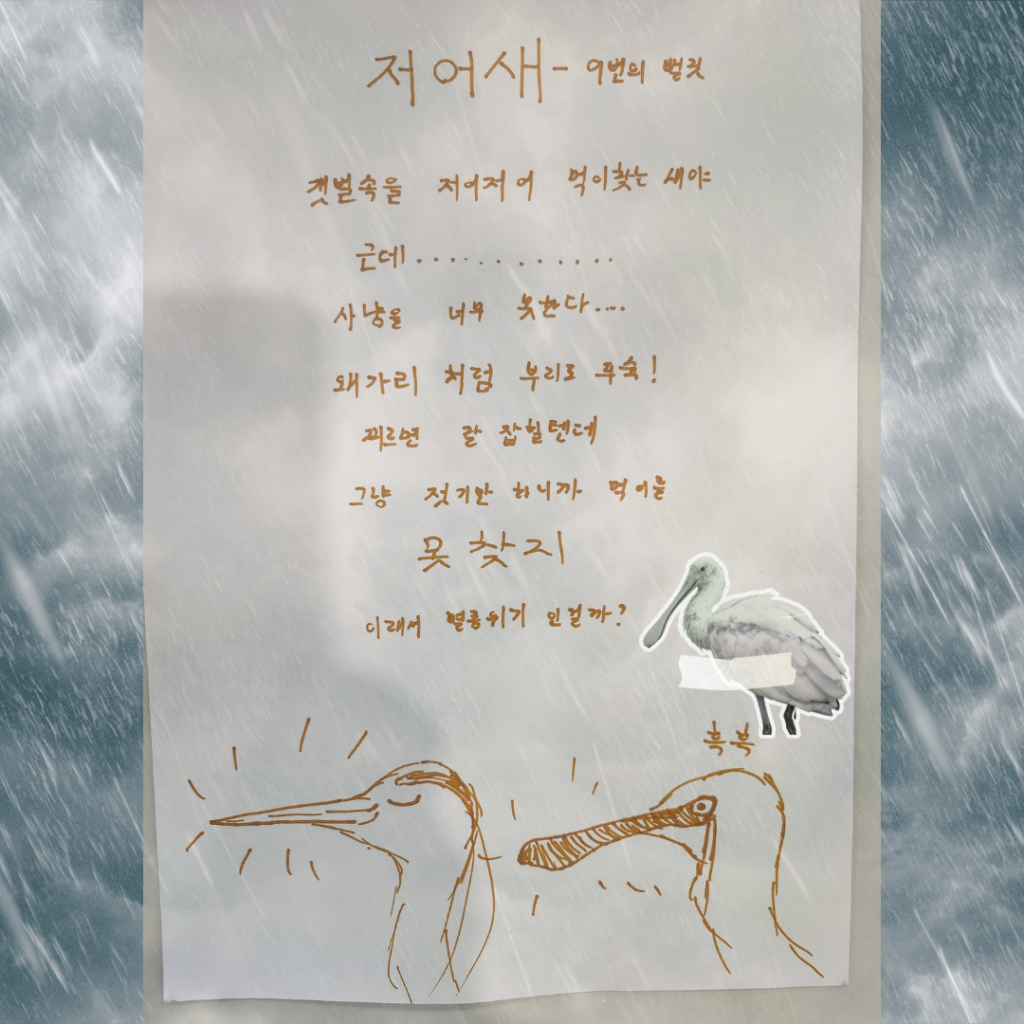 저어새 - 9번의 벌칙
갯벌속을 저어저어 먹이찾는 새야
근데............
사냥을 너무 못한다....
왜가리 처럼 부리로 푸숙!
찌르면 잘 잡힐텐데
그냥 젓기만 하니까 먹이를
못찾지
이래서 멸종위기 인걸까?
흑흑